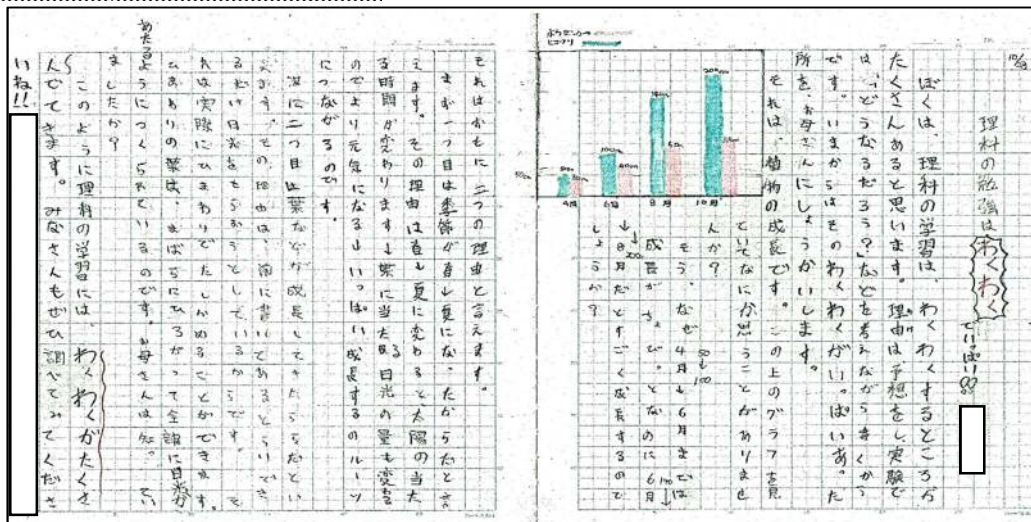 理科の勉強は わくわく でいっぱい!!
ぼくは、理科の学習は、わくわくするところが
たくさんあると思います。理由は予想をし、実験で
は、「どうなるだろう?」などを考えながら
です。いまからはそのわくわくがいっぱいあった
所を、お母さんにしょうかいします。
それは、植物の成長です。この上のグラフを見
ていてなにか思うことがありませ
んか?
ヒマワリ
4月 6月 8月 10月
そう、なぜ4月→6月までは
成長がちょびっとなのに6月
→8月だとすごく成長するので
しょうか?
それはおもに二つの理由と言えます。
まず一つ目は季節が春→夏になったからだと言
えます。その理由は春→夏に変わると太陽の当た
る時間が変わります→葉に当たる日光の量も変わる
のでより元気になる→いっぱい成長するのルーツ
につながるのです。
次に二つ目は葉などが成長してきたからだとい
えます。その理由は、前に書いてあるとおりでき
るだけ日光をもらおうとしているからです。そ
れは実際にひまわりでたしかめることができます。
ひまわりの葉は、まばらにひろがって全部に日光が
あたるようにつくられているのです。お母さんは知ってい
ましたか?
このように理科の学習には、わくわくがたくさ
んでてきます。みなさんもぜひ調べてみてくださ
いね!!